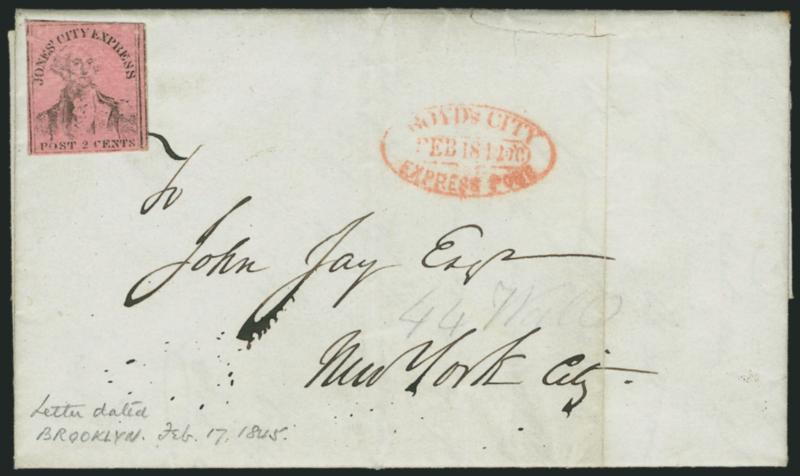 JONES' CITY EXPRESS
POST 2 CENTS
BOYD'S CITY
FEB 18
EXPRESS POST
To
John Jay Esqr
44 Wall
New York City.
Letter dated
BROOKLYN. Feb. 17, 1845.